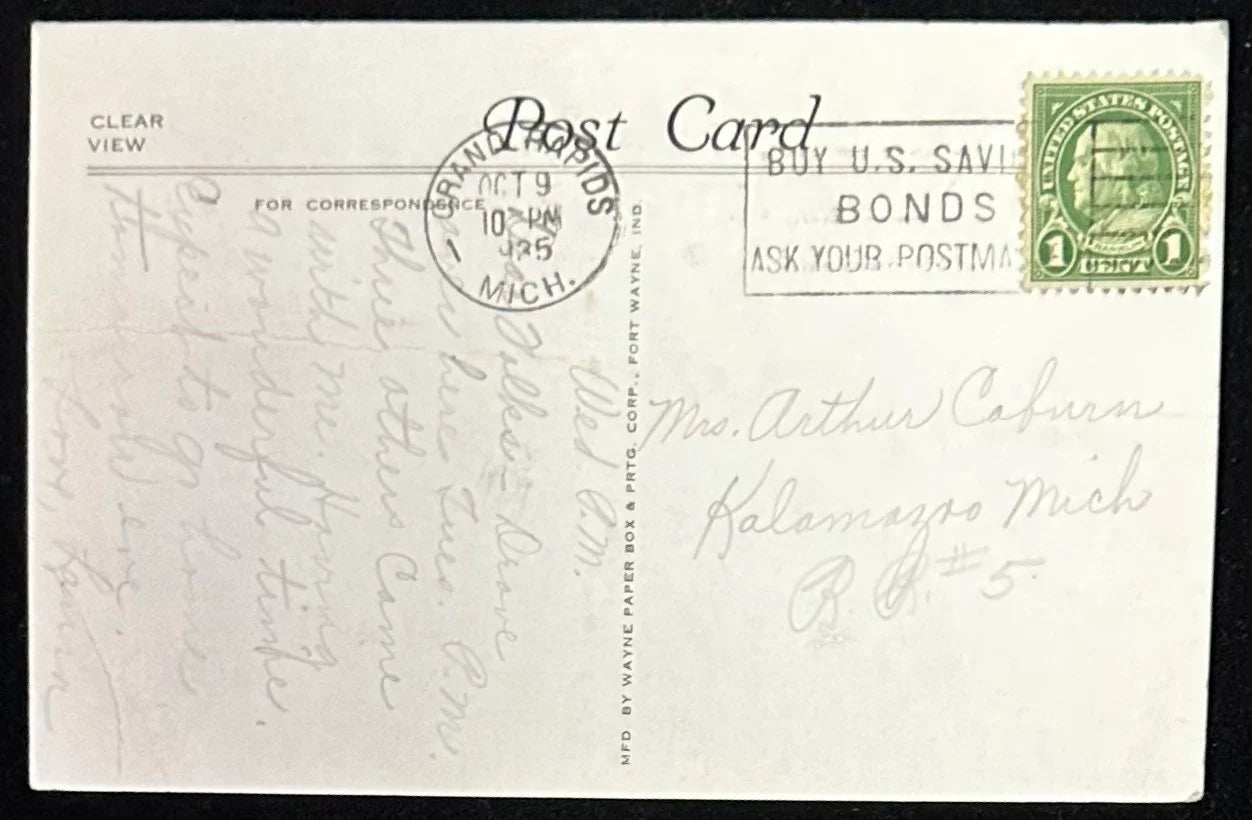 CLEAR
VIEW
Post Card
FOR CORRESPONDENCE
GRAND RAPIDS
OCT 9
10 PM
1935
MICH.
BUY U.S. SAVI
BONDS
ASK YOUR POSTMA
UNITED STATES POSTAGE
FRANKLIN
1 1
Wed P.M.
Folks:- Drove
here Tues. P.M.
Three others Came
with me. Having
a wonderful time.
Expect to go home
eve.
Love,
MFD. BY WAYNE PAPER BOX & PRTG. CORP., FORT WAYNE, IND.
Mrs. Arthur Coburn
Kalamazoo Mich
R. R. #5